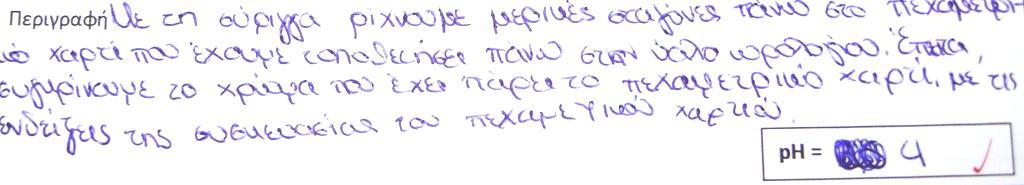 Περιγραφή Με τη σύριγγα ρίχνουμε μερικές σταγόνες πάνω στο πεχαμετρι-
κό χαρτί που έχουμε τοποθετήσει πάνω στην ύαλο ωρολογίου. Έπειτα,
συγκρίνουμε το χρώμα που έχει πάρει το πεχαμετρικό χαρτί, με τις
ενδείξεις της συσκευασίας του πεχαμετρικού χαρτιού.
pH = 4